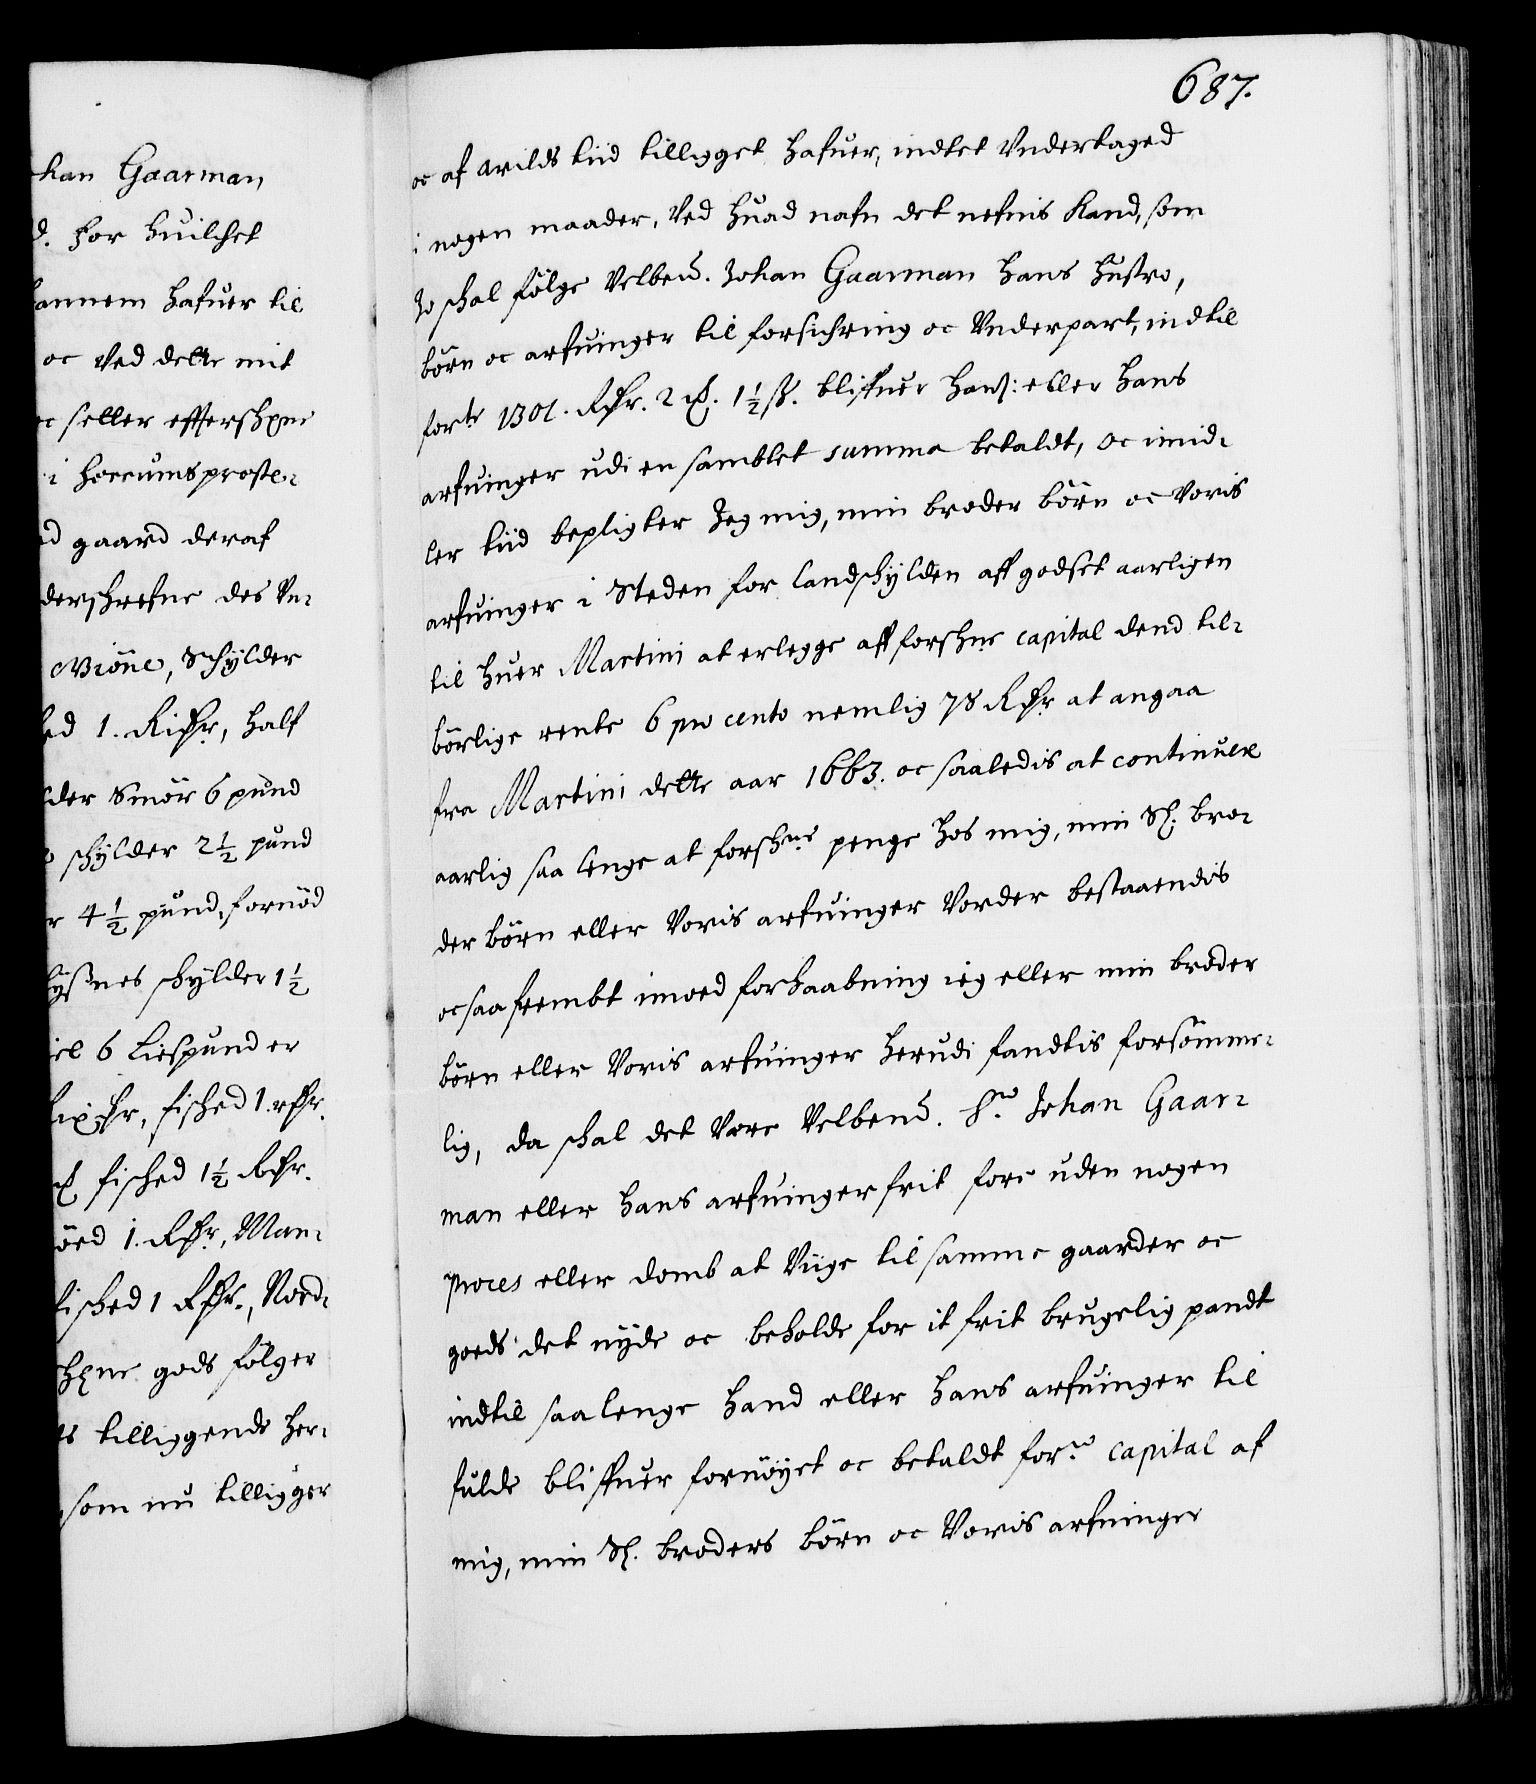 khan Gaarman,
d. for huilchet
annem hafuer til
oc ved dette mit
oc seller effterschrne
i Horrumsproste-
ed gaard deraf
derschrefne des Vn-
Miöne, Schÿlder
ed 1. Rixdr, half
lder Smör 6 pund
schÿlder 2½ pund
r 4½ pund, fornöd
schÿlder 1½
6 Liespund er
fisched 1. rdr.
fisched 1½ Rdr.
1. Rdr, Man-
fisched 1 Rdr., Nord-
gods fölger
tilliggende her-
som nu tilligger
687.
oc af Arilds tiid tilligget hafuer, indtet Vndertaged
i nogen maader, Ved huad nafn det nefnis kand, som
Jo schal fölge Velbend. Johan Gaarman hans hustro,
börn oc arfuinger til forsichring oc Vnderpart, indtil
forte 1301. Rdr. 2 ₰. 1½ ß. blifuer hans: eller hans
arfuinger udi en samblet summa betaldt, oc imid-
ler tiid bepligter Jeg mig, min broder börn oc Voris
arfuinger i Steden for landschÿlden aff godset aarligen
til huer Martini at erlegge aff forschne capital dend til-
börlige rente 6 pro cento nemlig 78 Rdr at angaa
fra Martini dette aar 1663. oc saaledis at continuere
aarlig saa lenge at forschne penge hos mig, min Sl. bro-
der börn eller Voris arfuinger Vorder bestaaendis
oc saa frembt imoed forhaabning ieg eller min broder
börn eller Voris arfuinger herudi fandtis forsömme-
lig, da schal det Vere Velbend. Hr. Johan Gaar-
man eller hans arfuinger frit fore uden nogen
proces eller domb at Viige til samme gaarder oc
goeds det nÿde oc beholde for it frit brugelig pandt
indtil saalenge hand eller hans arfuinger til
fulde blifuer fornöyet oc betaldt forne capital af
mig, min Sl. broders börn oc Voris arfuinger